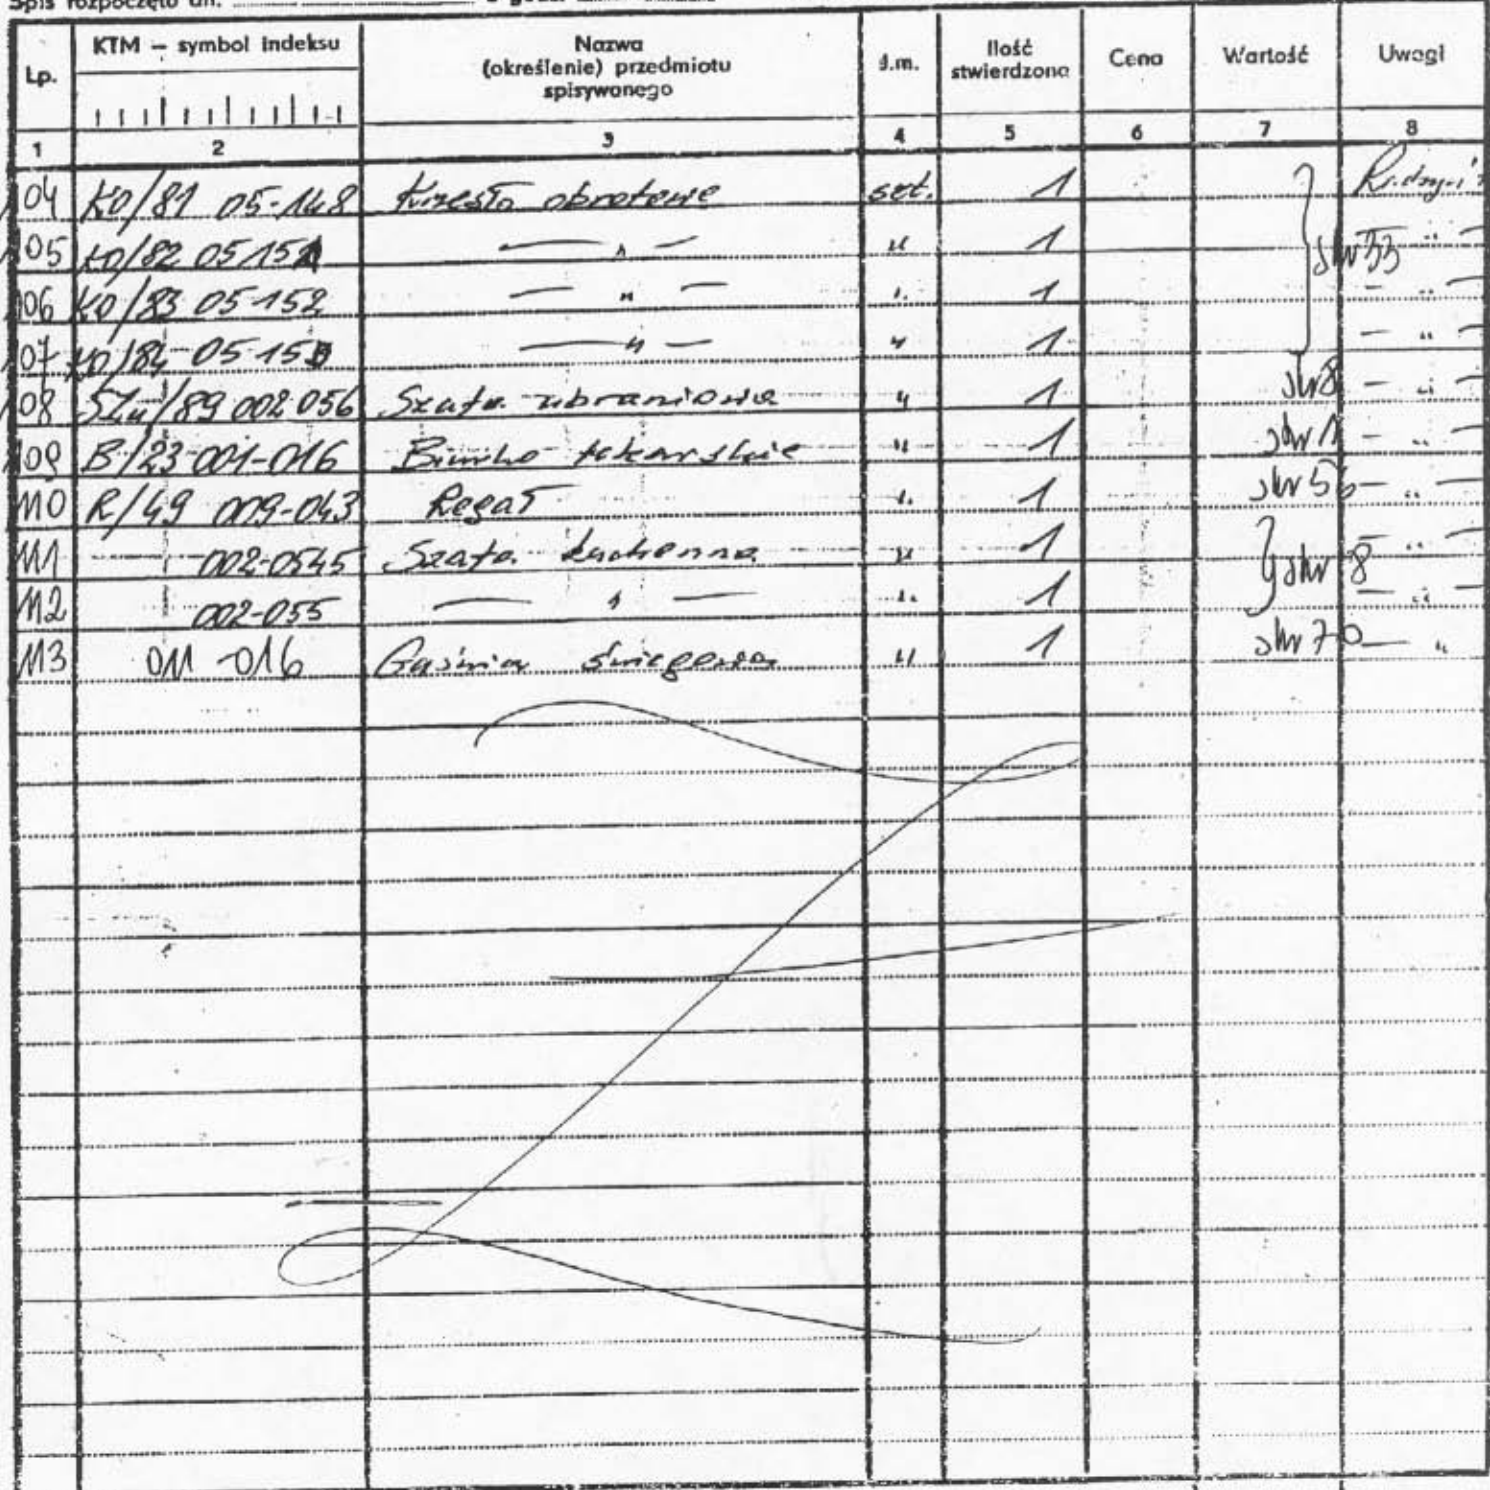 Spis rozpoczęto dn.
Lp. KTM – symbol indeksu Nazwa (określenie) przedmiotu spisywanego J.m. Ilość stwierdzona Cena Wartość Uwagi
1 2 3 4 5 6 7 8
104 KO/81 05-148 Krzesło obrotowe szt. 1
105 KO/82 05 151 — " — " 1 str 33 — " —
106 KO/83 05-152 — " — " 1 — " —
107 KO/84 05-153 — " — " 1 — " —
108 SZu/89 002 056 Szafa ubraniowa " 1 str 8 — " —
109 B/23 001-016 Biurko lekarskie " 1 str 1 — " —
110 R/49 009-043 Regał " 1 str 56 — " —
111 002-0545 Szafa kuchenna " 1 str 8 — " —
112 002-055 — " — " 1 — " —
113 011-016 Gaśnica śniegowa " 1 str 70 — "